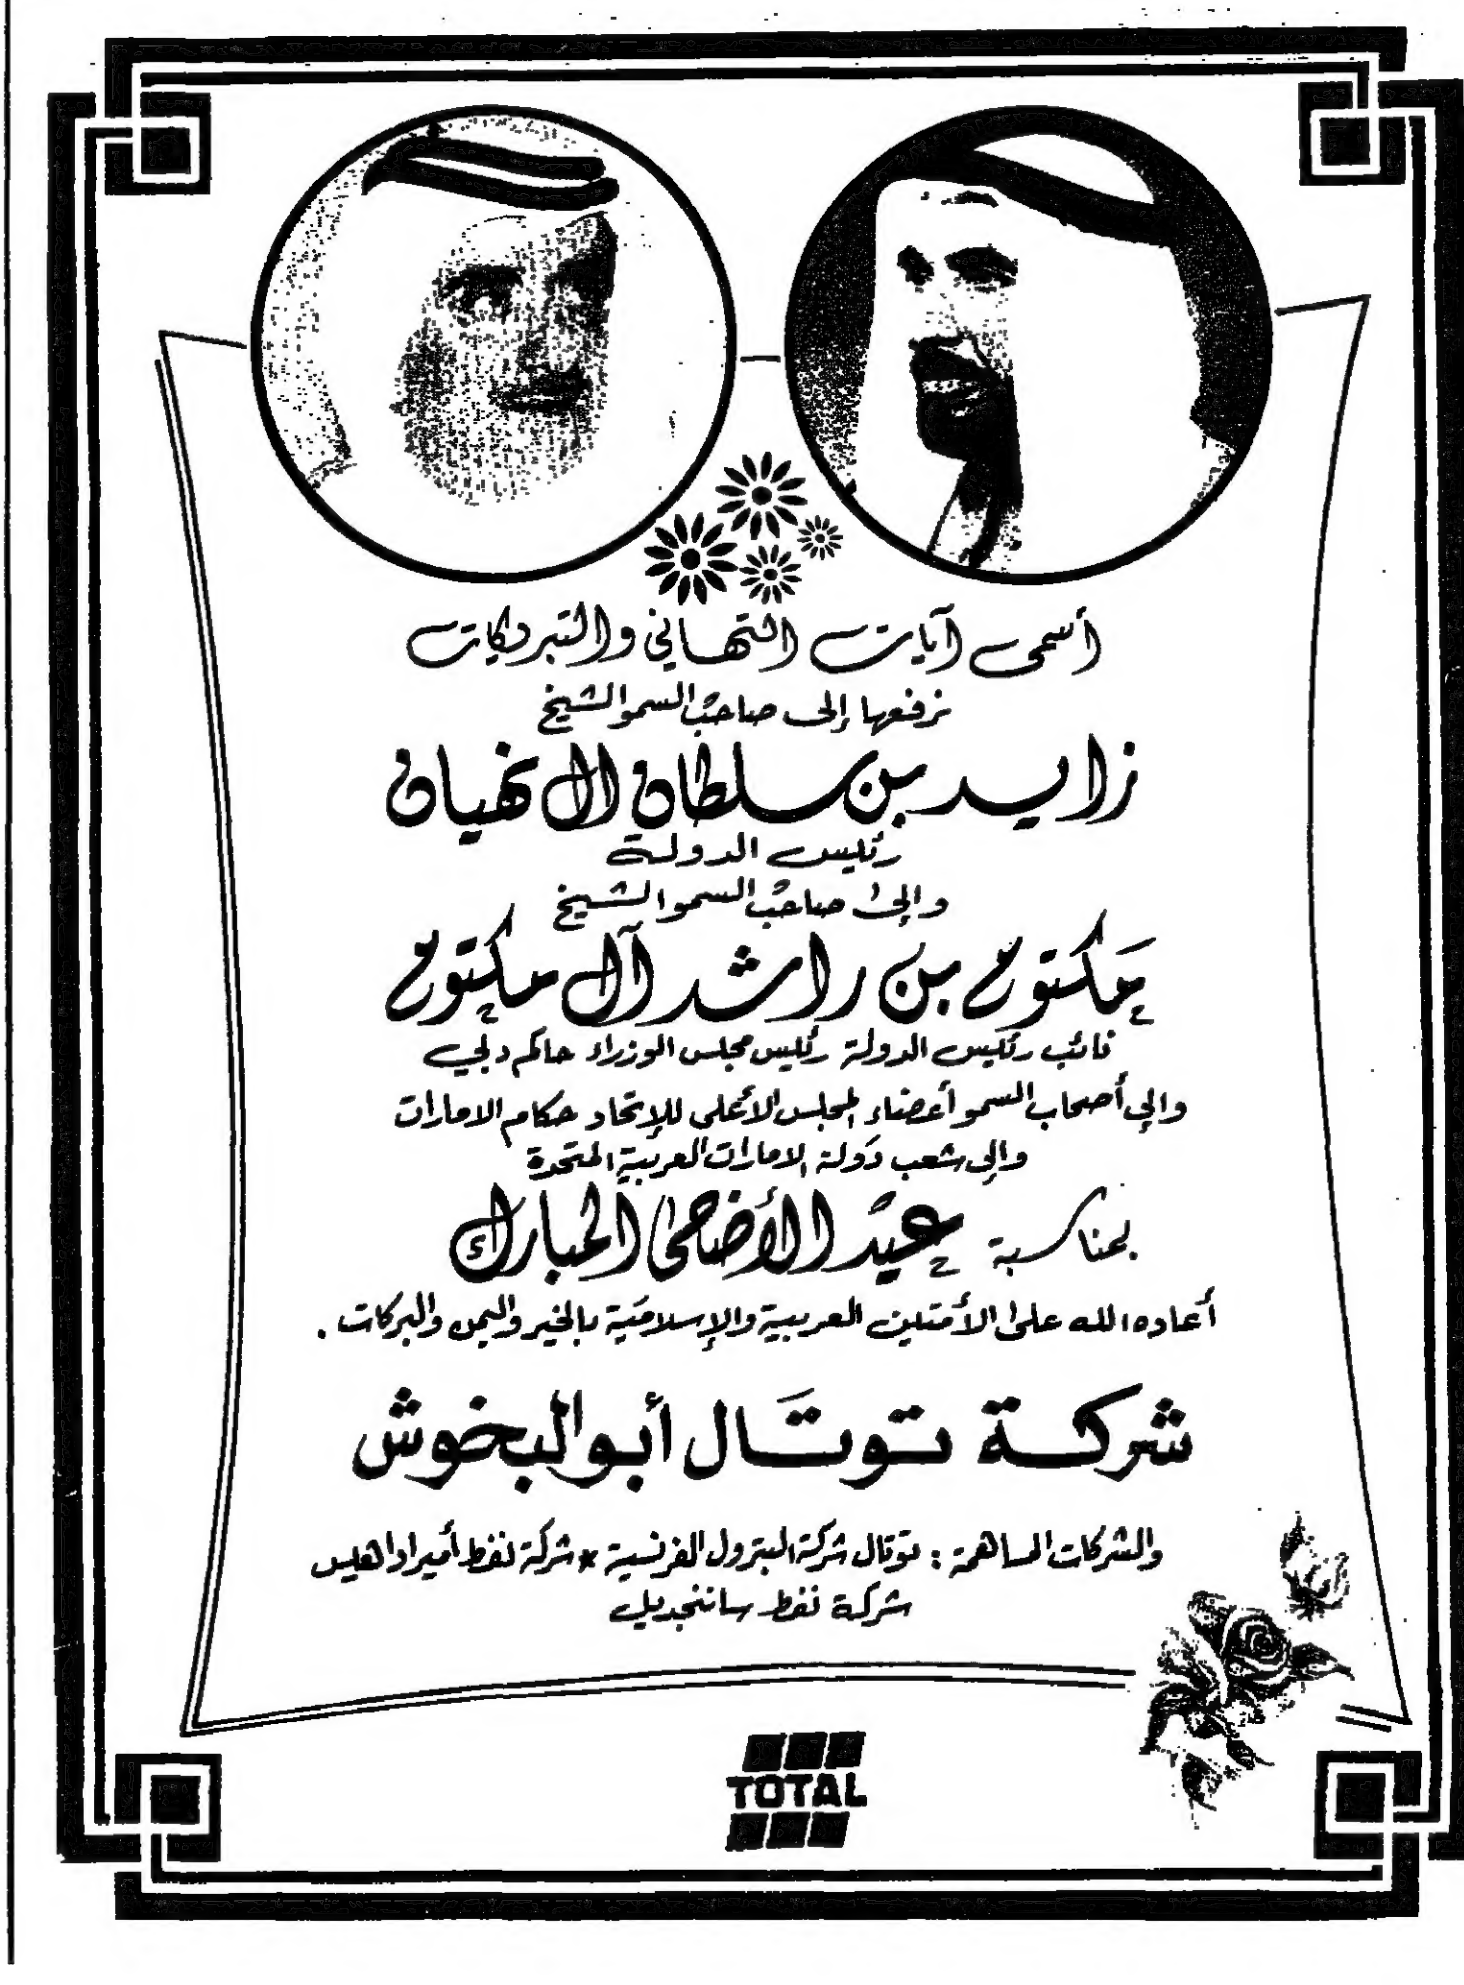 أسمى آيات التهاني والتبريكات
نرفعها إلى صاحب السمو الشيخ
زايد بن سلطان آل نهيان
رئيس الدولة
وإلى صاحب السمو الشيخ
مكتوم بن راشد آل مكتوم
نائب رئيس الدولة رئيس مجلس الوزراء حاكم دبي
وإلى أصحاب السمو أعضاء المجلس الأعلى للإتحاد حكام الامارات
وإلى شعب دولة الامارات العربية المتحدة
بمناسبة عيد الأضحى المبارك
أعاده الله على الأمتين العربية والإسلامية بالخير واليمن والبركات .
شركة توتال أبو البخوش
والشركات المساهمة : توتال شركة البترول الفرنسية * شركة نفط أميرادا هيس
شركة نفط ساننجديل
TOTAL